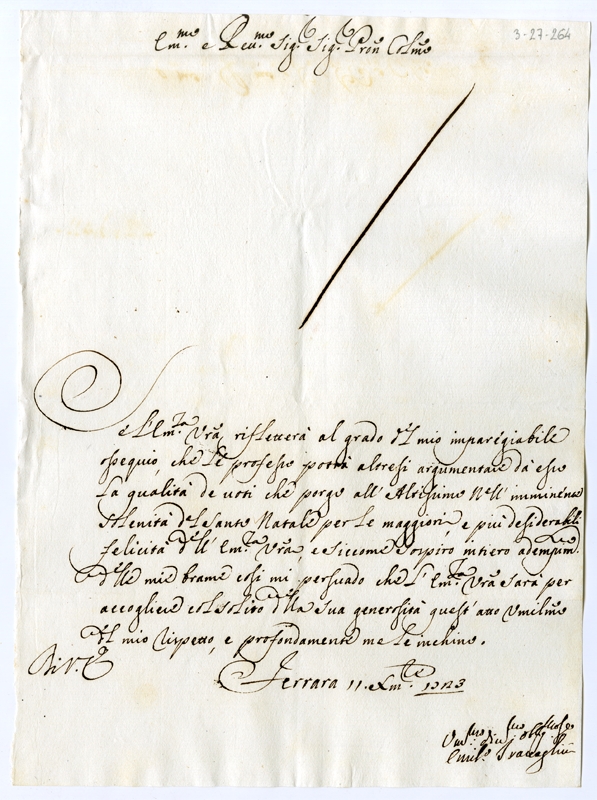 3-27-264
Em.mo e Reu.mo Sig.r Sig.r Pron Colmo
Se l'Em.za Vra rifletterà al grado del mio impareggiabile
ossequio, che le professo potrà altresi argumentare da esso
la qualità de uoti che porgo all'Altissimo nell'imminente
solenità del Santo Natale per le maggiori, e più desiderabili
felicità dell'Em.za Vra e siccome sospiro intiero adempim.to
delle mie brame cosi mi persuado che l'Em.za Vra sarà per
accogliere col solito della sua generosità quest'atto Vmilmo
del mio rispetto, e profondamente me le inchino.
Di V. E.
Ferrara 11. Xm.bre